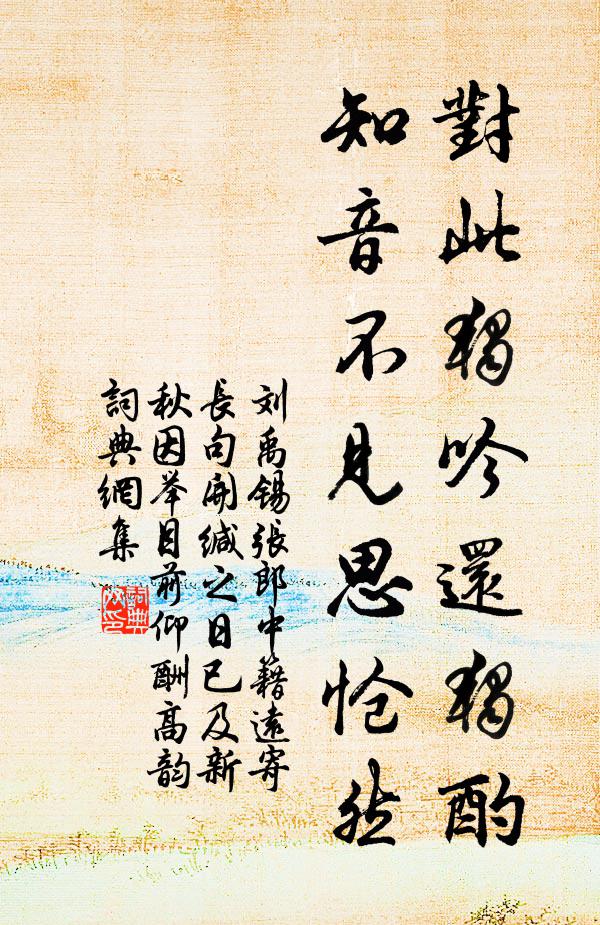 對此獨吟還獨酌
知音不見思怆然
刘禹錫張郎中籍遠寄
長句開缄之日已及新
秋因举目前仰酬高韵
詞典網集